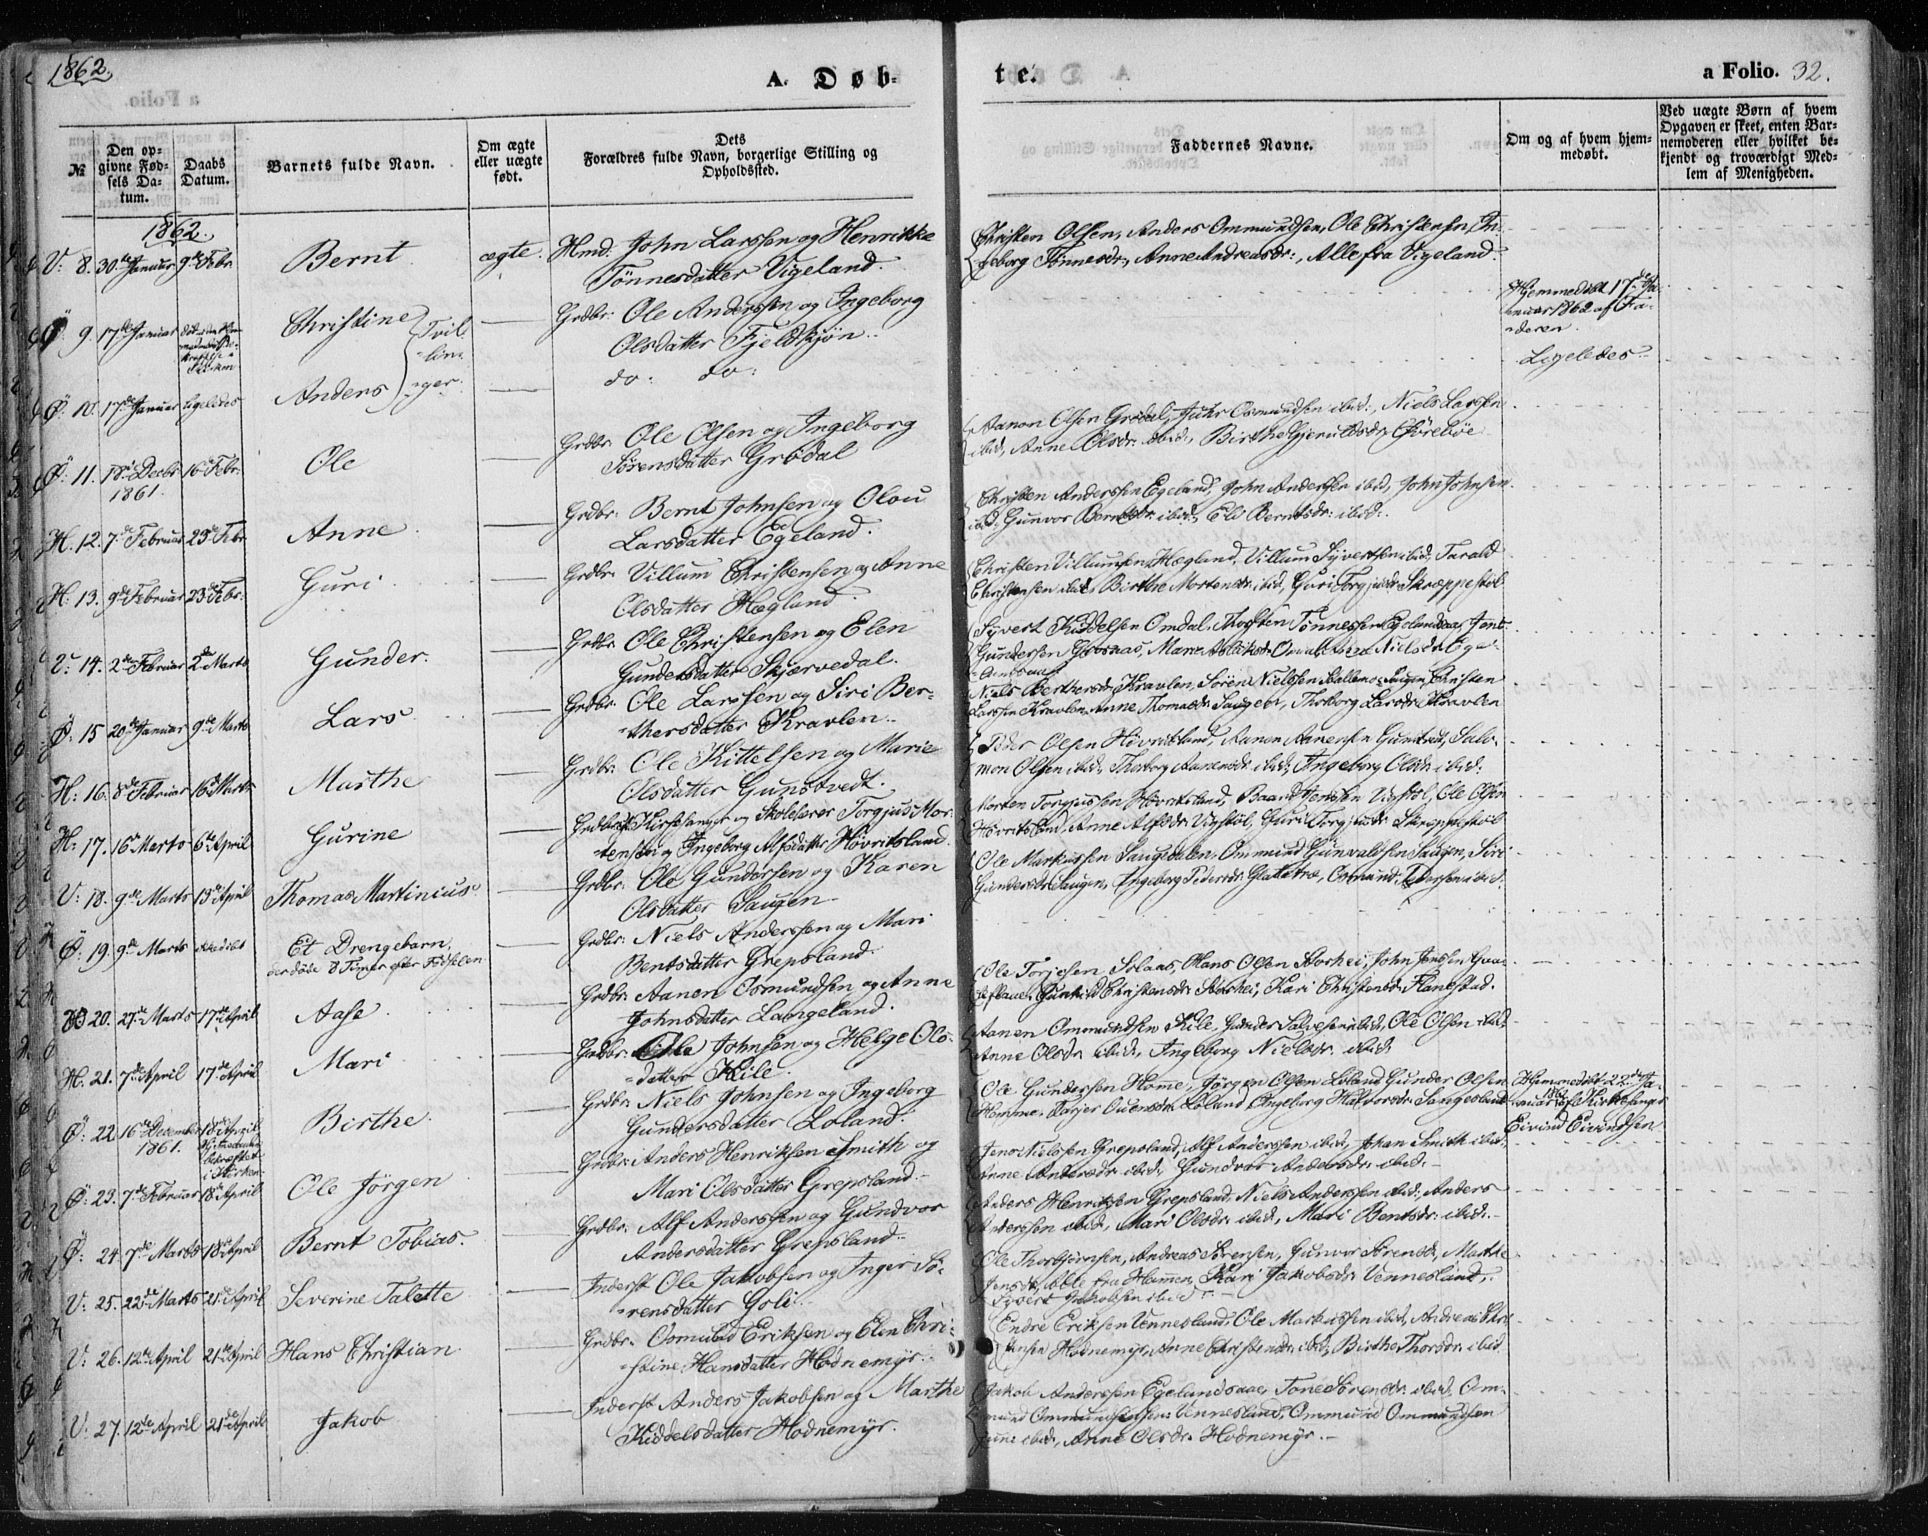 1862.
A. Døb-
№
Den op-
givne Fød-
sels Da-
tum.
Daabs
Datum.
Barnets fulde Navn.
Om ægte
eller uægte
født.
Dets
Forældres fulde Navn, borgerlige Stilling og
Opholdssted.
1862.
V: 8. 30te Januar 9de Febr. Bernt ægte. Hmd. John Larssen og Henrikke
Tønnesdatter Vigeland.
Ø 9 17de Januar Christine Tvil Grdbr: Ole Anderssen og Ingeborg
Olsdatter Fjeldskjøn.
Ø: 10. 17de Januar ligeledes Anders ger. do: do:
Ø: 11. 18de Decbr 16de Febr. Ole Grdbr: Ole Olsen og Ingeborg
1861. Sørensdatter Grødal
H. 12. 7de Februar 23de Febr. Anne Grdbr: Bernt Johnsen og Olou
Larsdatter Egeland.
H: 13. 9de Februar 23de Febr: Guri Grdbr: Villum Christensen og Anne
Olsdatter Hægland
V: 14. 2de Februar 2de Marts Gunder. Grdbr: Ole Christensen og Elen
Gundersdatter Skjærvedal.
Ø: 15 20de Januar 9de Marts Lars Grdbr: Ole Larssen og Siri Ber-
thersdatter Kravlen.
H: 16. 8de Februar 16de Marts Marthe Grdbr: Ole Kittelsen og Marie
Olsdatter Gunstvedt.
H: 17. 16de Marts 6te April Gurine Grdbr: Kirkesanger og Skolelærer Torgjus Mor-
tensen og Ingeborg Alfsdatter Høvritsland.
V: 18. 9de Marts 13de April Thomas Martinius Grdbr: Ole Gundersen og Karen
Olsdatter Saugen
Ø: 19. 9de Marts Et Drengebarn, Grdbr: Niels Anderssen og Mari
der døde 8 Timer efter Fødselen Bentsdatter Grepsland.
20. 27de Marts 17de April Aase Grdbr: Aanen Osmundsen og Anne
Johnsdatter Langeland.
H. 21. 7de April 17de April Mari Grdbr: Johnsen og Helge Ols-
datter Kile.
Ø: 22. 16de December 18de April Birthe. Grdbr: Niels Johnsen og Ingeborg
1861. Gundersdatter Loland.
Ø: 23. 7de Februar 18de April Ole Jørgen Grdbr: Anders Henriksen Smith og
Mari Olsdatter Grepsland.
Ø: 24. 7de Marts 18de April Bernt Tobias. Grdbr: Alf Anderssen og Gundvor
Andersdatter Grepsland.
V: 25. 22de Marts 21de April Severine Talette Inderst Ole Jakobsen og Inger Sø-
rensdatter Goli.
V: 26. 12te April 21de April Hans Christian Grdbr: Osmund Eriksen og Elen Chri-
stine Hansdatter Hodnemyr.
V: 27. 12te April 21de April Jakob Inderst Anders Jakobsen og Marthe
Kiddelsdatter Hodnemyr.
te.
a Folio. 32.
Faddernes Navne.
Om og af hvem hjem-
medøbt.
Ved uægte Børn af hvem
Opgaven er skeet, enten Bar-
nemoderen eller hvilket be-
kjendt og troværdigt Med-
lem af Menigheden.
Christen Olsen, Anders Ommundsen, Ole Christensen, In-
geborg Tønnesdr., Anne Andreasdr:, Alle fra Vigeland.
Hjemmedøbt 17de Ja-
nuar 1862 af Fa-
deren.
Ligeledes.
Aanon Olsen Grødal, Osmundsen ibid:, Niels Larssen
ibid, Anne Olsdr: ibid:, Birthe
Christen Anderssen Egeland, John Andersen ibid, John Johnsen
ibid, Gunvor Berntsdr: ibid:, Eli Berntsdr: ibid:
Christen Villumsen Hægland, Villum Syvertsen ibid: Tarald
Christensen ibid, Birthe Mortensdr: ibid, Guri Torgjusdr: Skræppestøl
Syvert Kiddelsen Omdal, Tønnessen Egelandsaa,
Gundersen
Niels Berthersen Kravlen, Søren Nielssen Saugen, Christen
Larssen Kravlen, Anne Thomasdr: Saugen, Thorborg Larsdr: Kravlen
Peder Olsen Høvritsland, Aanen Gunstvedt, Salo-
mon Olsen ibid, Thorborg Aanensdr: ibid, Ingeborg Olsdr: ibid:
Morten Torgjussen Høvritsland, Baard Jenssen Vigstøl, Ole Olsen
Høvritsland, Anne Alfsdr: Vigstøl, Guri Torgjusdr: Skræppestøl
Ole Markussen Saugedalen, Ommund Gunvaldsen Saugen, Siri
Gundersdr: Saugen, Ingeborg Pedersdr: Glattetræ, Osmund ibid.
Ole Torjesen Solaas, Hans Olsen Storhei, John Jenssen
Christensdr: Storhei, Kari Christensdr: Flanestad.
Aanen Ommundsen Kile, Gunder Salvesen ibid, Ole Olsen ibid
Anne Olsdr: ibid, Ingeborg Nielsdr: ibid:
Ole Gunderssen Homme, Jørgen Olsen Loland, Gunder Olsen Hjemmedøbt 22de Ja-
Homme, Loland, Ingeborg Halvorsdr: nuar af Kirkesanger
Eivind Eivindsen
Jens Nielssen Grepsland, Alf Anderssen ibid, Johan Smith ibid,
Anne Andersdr: ibid:, Gundvor Andersdr: ibid.
Anders Henriksen Grepsland, Niels Anderssen ibid, Anders
Anderssen ibid, Mari Olsdr: ibid, Mari Bentsdr: ibid.
Ole Thorbjørnsen, Andreas Sørensen, Gunvor Sørensdr, Marthe
Jensdr, Alle fra Kari Jakobsdr: Vennesland,
Syvert Jakobsen ibid
Endre Eriksen Vennesland, Ole Markussen ibid, Andreas Chri-
stensen Hodnemyr, Anne Christensdr: ibid, Birthe Thorsdr: ibid.
Jakob Anderssen Egelandsaae, Tone Sørensdr: ibid, Om-
mund Ommundsen Vennesland, Ommund Ommundsen
ibid, Anne Olsdr: Hodnemyr.